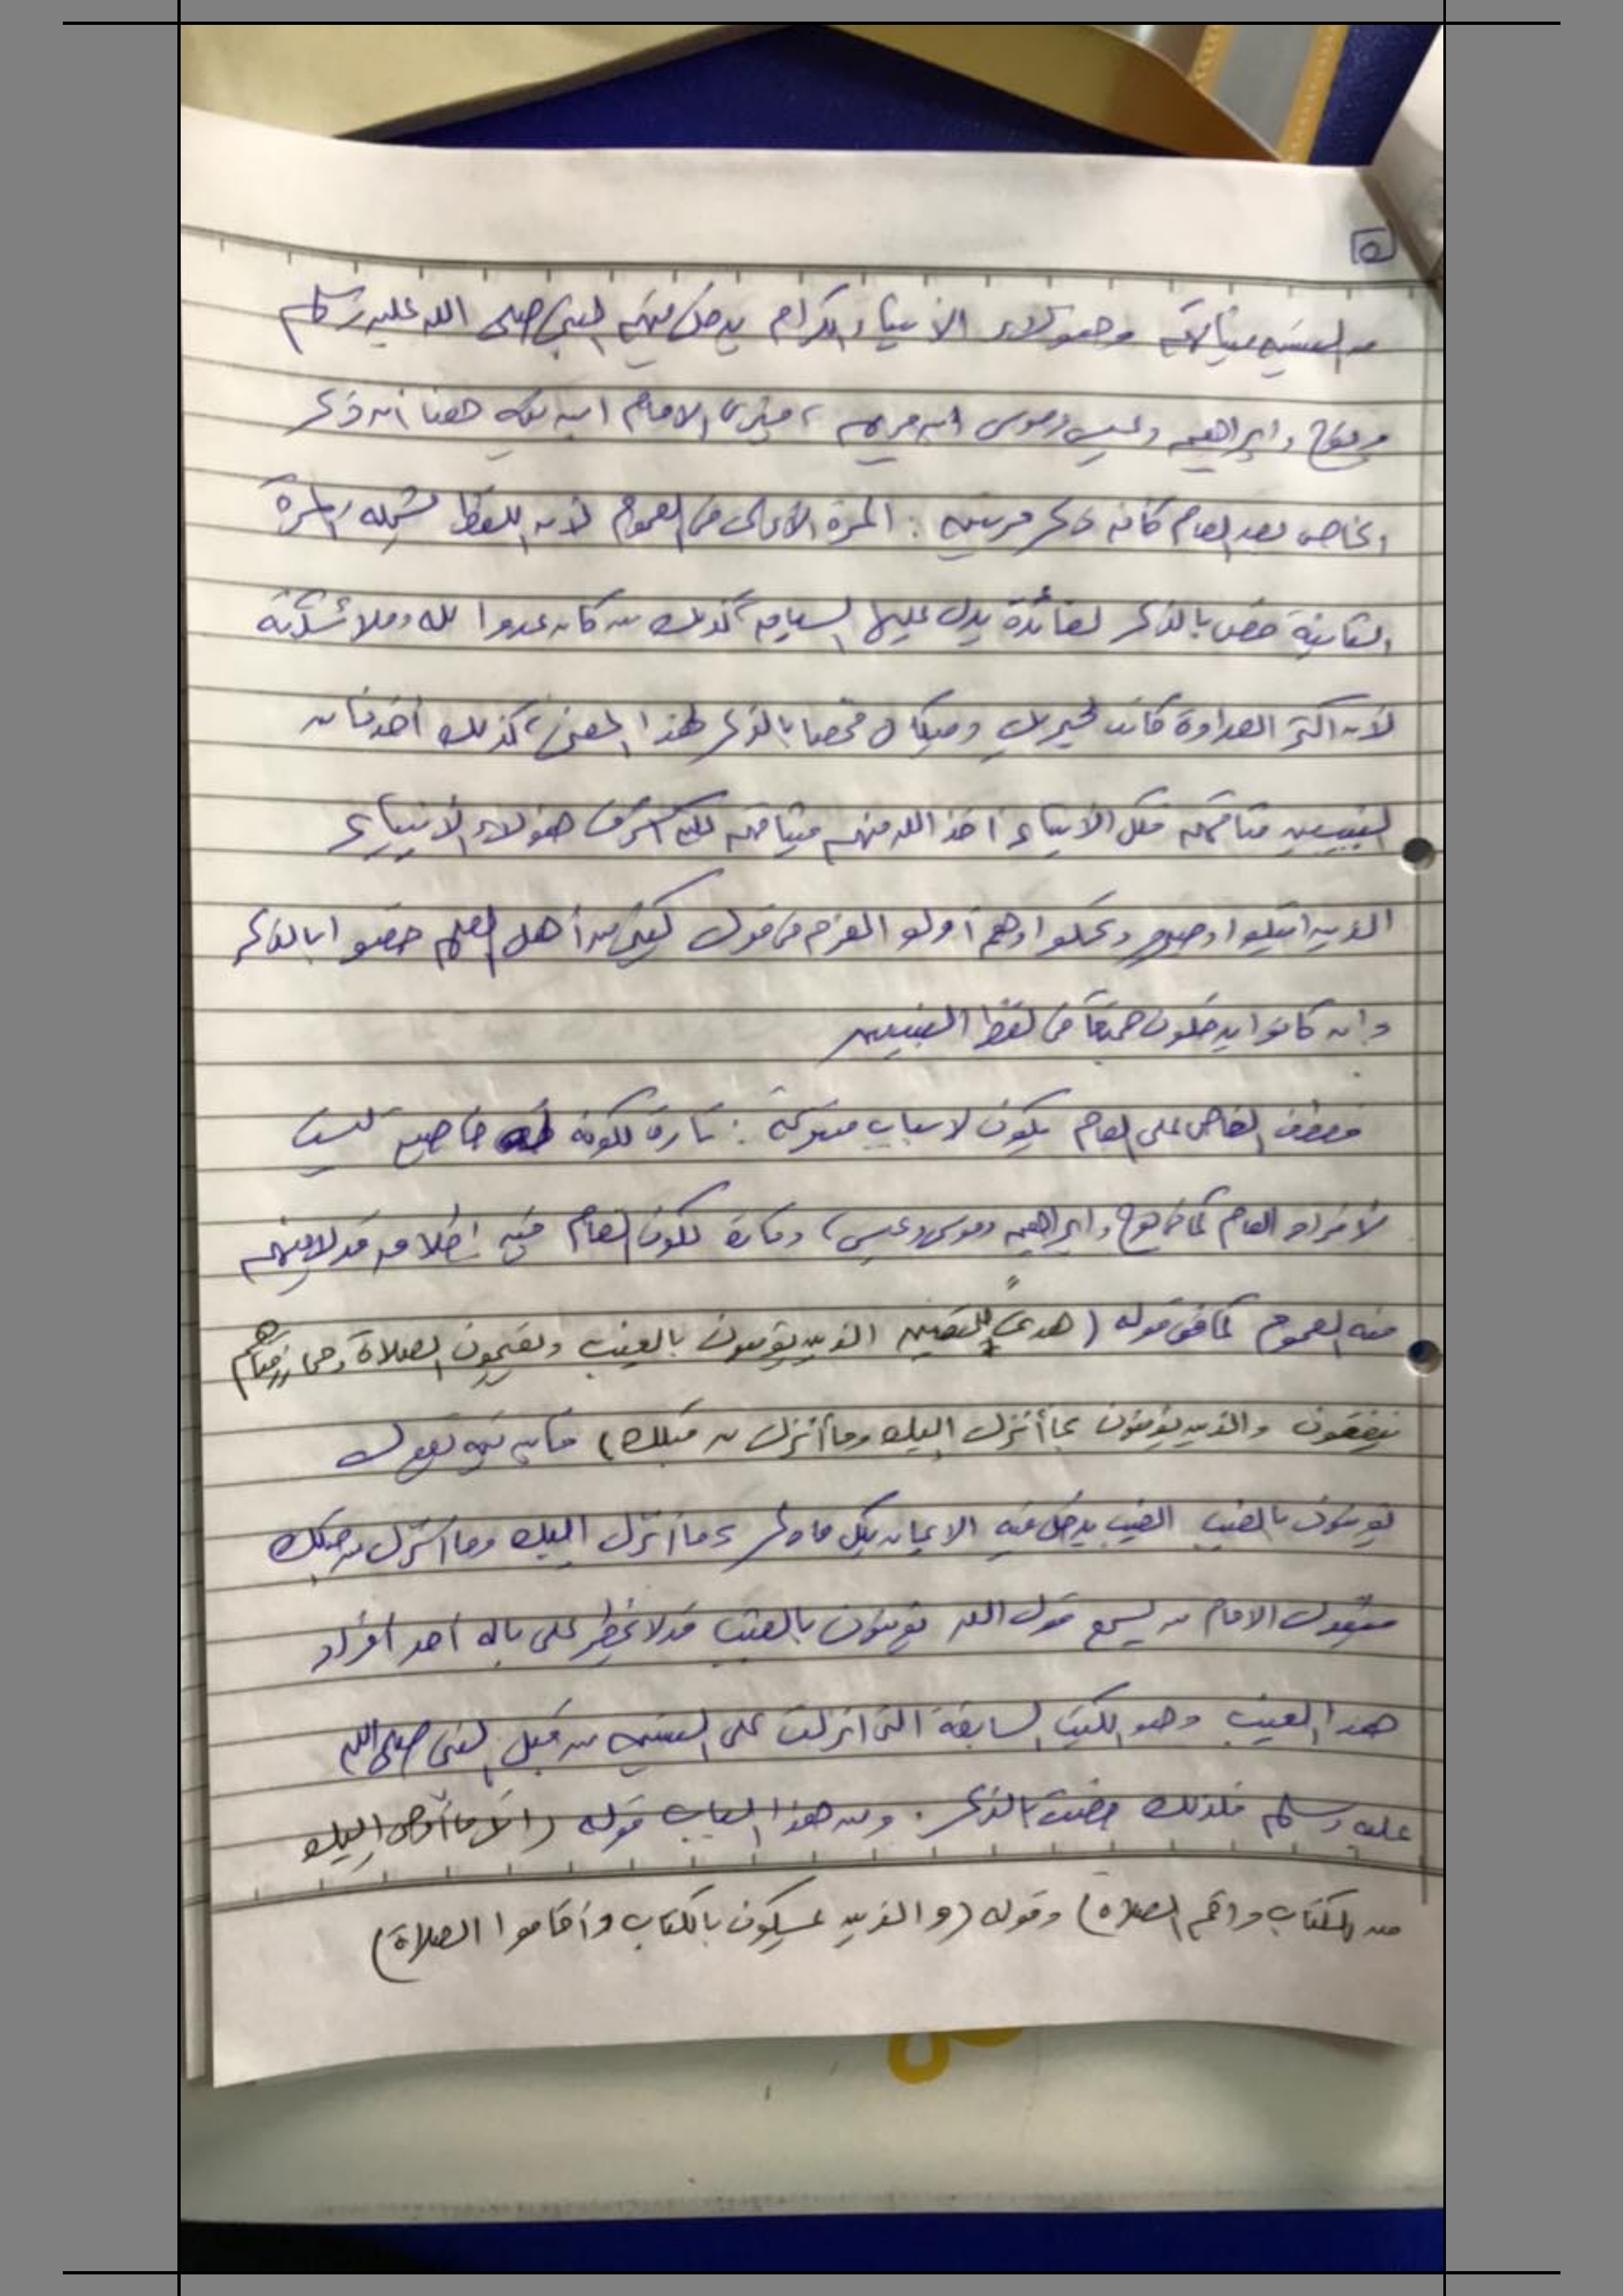 ٥
من النبيين ميثاقهم وهؤلاء الأنبياء الكرام يدخل فيهم النبي صلى الله عليه وسلم
ونوح وابراهيم وعيسى وموسى ابن مريم ، فيرى الامام ابن تيميه هنا أن ذكر
الخاص بعد العام كأنه ذكر مرتين : المرة الأولى في العموم لأن اللفظ شمله والمرة
الثانية خص بالذكر لفائدة يدل عليها السياق كذلك من كان عدوا لله وملائكته
لأن اكثر العداوة كانت لجبريل وميكال فخصا بالذكر لهذا المعنى، كذلك أخذنا من
النبيين ميثاقهم فكل الأنبياء أخذ الله منهم ميثاقهم لكن هؤلاء الأنبياء
الذين ابتلوا وصبروا وتحملوا وهم أولو العزم في قول كثير من أهل العلم خصوا بالذكر
وان كانوا يدخلون جميعًا في لفظ النبيين
فعطف الخاص على العام يكون لاسباب متنوعة : تارة لكونه له خاصية ليست
لأفراد العام كما في نوح وابراهيم وموسى وعيسى، وتارة لكون العام فيه إطلاق قد لا يفهم
منه العموم كما في قوله (هدىً للمتقين الذين يؤمنون بالغيب ويقيمون الصلاة ومما رزقناهم
ينفقون والذين يؤمنون بما أنزل اليك وما أنزل من قبلك) فأن تقول
يؤمنون بالغيب الغيب يدخل فيه الايمان بكل ما ذكر بما أنزل اليك وما أنزل من قبلك
فيقول الامام من يسمع قول الله يؤمنون بالغيب قد لا يخطر على باله أحد أفراد
هذا الغيب وهو الكتب السابقة التى انزلت على النبيين من قبل النبى صلى الله
عليه وسلم فلذلك خصت بالذكر . ومن هذا الباب قوله (اتل ما أوحى اليك
من الكتاب واقم الصلاة) وقوله (والذين يمسكون بالكتاب وأقاموا الصلاة)